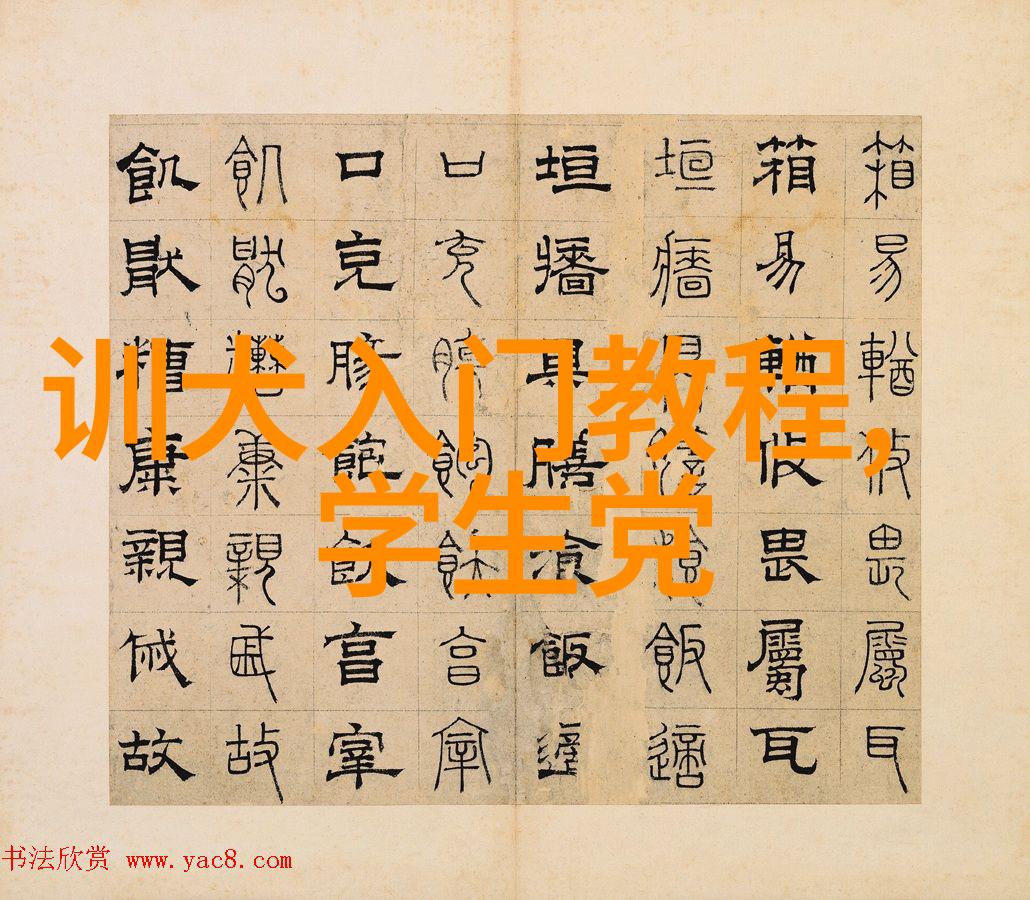 训犬入门教程,
学生党
箱易輶攸畏屬耳
箱易輶攸畏屬耳
垣牆具膳飡飯適
垣牆具膳湌飯適
口充腸飽飫亯宰
口充腸飽飫亯宰
飢厭糟糠親戚故
飢厭糟糠親戚故
书法欣赏 www.yac8.com